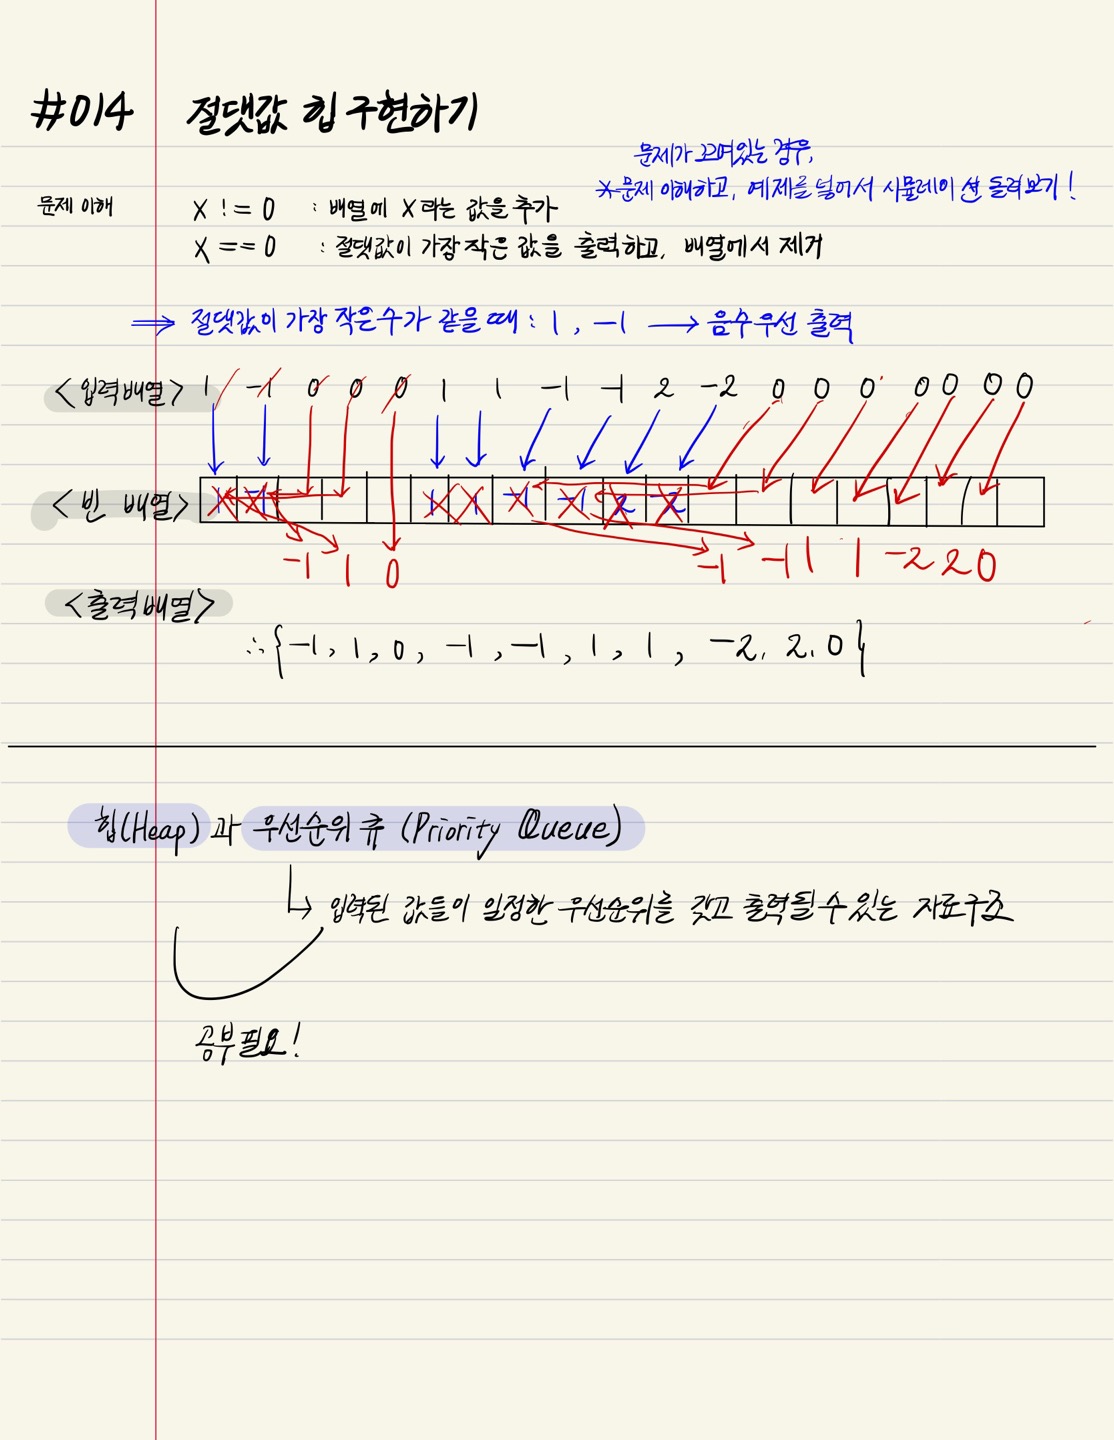 #014 절댓값 힙 구현하기
문제가 꼬여있는 경우,
※문제 이해하고, 예제를 넣어서 시뮬레이션 돌려보기!
문제 이해 X != 0 : 배열에 X라는 값을 추가
X == 0 : 절댓값이 가장 작은 값을 출력하고, 배열에서 제거
⇒ 절댓값이 가장 작은수가 같을 때 : 1, -1 → 음수우선 출력
<입력배열> 1 -1 0 0 0 1 1 -1 -1 2 -2 0 0 0 0 0 0 0
<빈 배열> 1 -1 1 1 -1 -1 2 -2
-1 1 0 -1 -1 1 1 -2 2 0
<출력배열>
∴ {-1, 1, 0, -1, -1, 1, 1, -2, 2, 0}
힙(Heap)과 우선순위 큐 (Priority Queue)
↳ 입력된 값들이 일정한 우선순위를 갖고 출력될 수 있는 자료구조
공부필요!